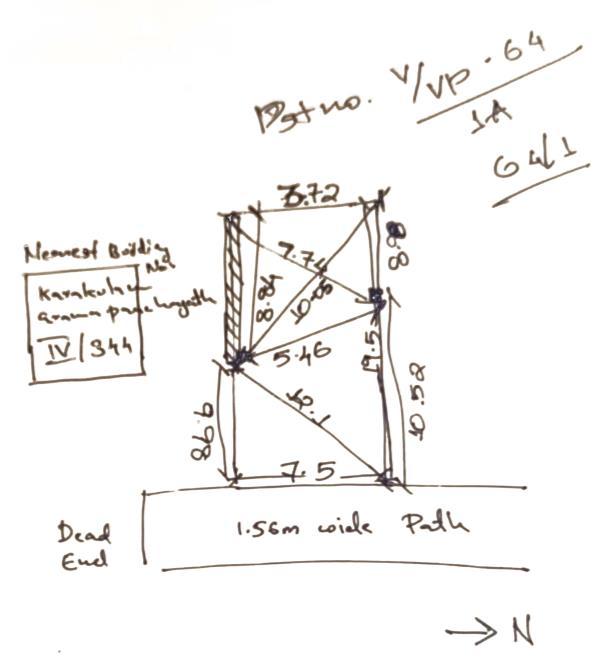 V/VP. 64
1A
64/1
3.72
Nearest Building
No:
Karakulam
grama panchayath
IV/344
7.74
8.8
8.84
10.05
5.46
7.5
10.52
10.1
7.5
Dead
End
1.56m wide Path
N